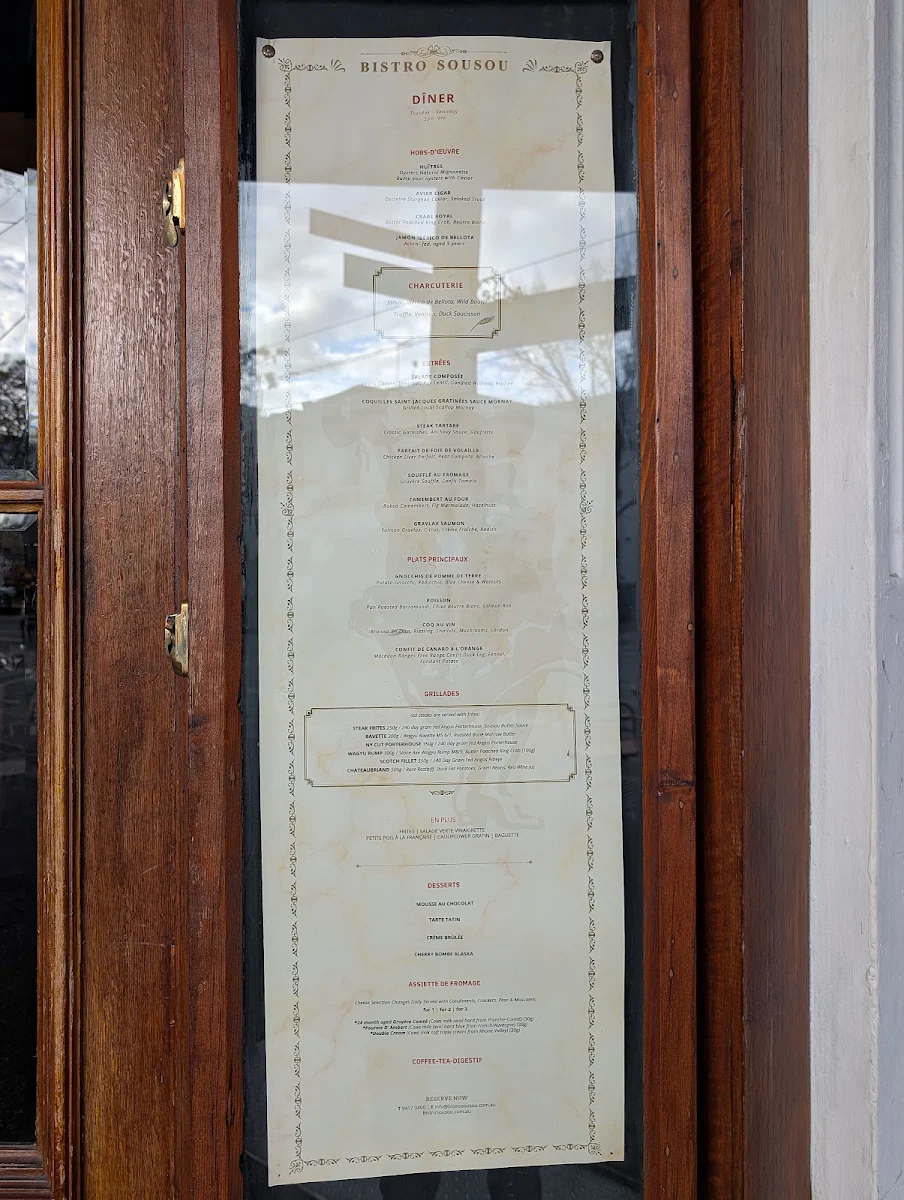 BISTRO SOUSOU
DÎNER
Tuesday - Saturday
5pm-late
HORS-D'ŒUVRE
HUÎTRES
Oysters Natural Mignonette
Bump your oysters with Caviar
CAVIAR CIGAR
Oscietra Sturgeon Caviar, Smoked Trout
CRABE ROYAL
Butter Poached King Crab, Beurre Blanc
JAMÓN IBÉRICO DE BELLOTA
Acorn-fed, aged 5 years
CHARCUTERIE
Jamón Ibérico de Bellota, Wild Boar,
Truffle, Venison, Duck Saucisson
ENTRÉES
SALADE COMPOSÉE
Lentil, Candied Walnuts,
COQUILLES SAINT-JACQUES GRATINÉES SAUCE MORNAY
Grilled Local Scallop Mornay
STEAK TARTARE
Classic Garnishes, Anchovy Sauce, Gaufrette
PARFAIT DE FOIE DE VOLAILLE
Chicken Liver Parfait, Pear Compote, Brioche
SOUFFLÉ AU FROMAGE
Gruyère Soufflé, Confit Tomato
CAMEMBERT AU FOUR
Baked Camembert, Fig Marmalade, Hazelnuts
GRAVLAX SAUMON
Salmon Gravlax, Citrus, Crème Fraîche, Radish
PLATS PRINCIPAUX
GNOCCHIS DE POMME DE TERRE
Potato Gnocchi, Radicchio, Blue Cheese & Walnuts
POISSON
Pan Roasted Barramundi, Chive Beurre Blanc, Salmon Roe
COQ AU VIN
Riesling, Shallots, Mushrooms, Lardon
CONFIT DE CANARD À L'ORANGE
Macedon Ranges Free Range Confit Duck Leg, Fennel,
Fondant Potato
GRILLADES
(all steaks are served with frites)
STEAK FRITES 250g / 240 day grain fed Angus Porterhouse, Sousou Butter Sauce
BAVETTE 200g / Wagyu Bavette MS 6/7, Roasted Bone Marrow Butter
NY CUT PORTERHOUSE 350g / 240 day grain fed Angus Porterhouse
WAGYU RUMP 300g / Stone Axe Wagyu Rump MB9, Butter Poached King Crab (100g)
SCOTCH FILLET 350g / 240 Day Grain Fed Angus Ribeye
CHATEAUBRIAND 500g / Rare Roasted, Duck Fat Potatoes, Green Beans, Red Wine Jus
EN PLUS
FRITES | SALADE VERTE VINAIGRETTE
PETITS POIS À LA FRANÇAISE | CAULIFLOWER GRATIN | BAGUETTE
DESSERTS
MOUSSE AU CHOCOLAT
TARTE TATIN
CRÈME BRÛLÉE
CHERRY BOMBE ALASKA
ASSIETTE DE FROMAGE
Cheese Selection Changes Daily Served with Condiments, Crackers, Pear & Muscatels
for 1 | for 2 | for 3
*24 month aged Gruyère Comté (Cows milk semi hard from Franche-Comté) (30g)
*Fourme D'Ambert (Cows milk semi hard blue from French/Auvergne) (30g)
*Double Cream (Cows milk soft triple cream from Rhone Valley) (30g)
COFFEE-TEA-DIGESTIF
RESERVE NOW
T 9457 0400 | E info@bistrosousou.com.au
bistrosousou.com.au